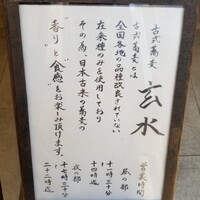 古式蕎麦
玄水
古式蕎麦とは
全国各地の品種改良されていない
在来種のみを使用しており
その為、日本古来の蕎麦の
"香り"と"食感"をお楽しみ頂けます。
営業時間
昼の部
十一時三十分
十四時迄
夜の部
十七時三十分
二十二時迄